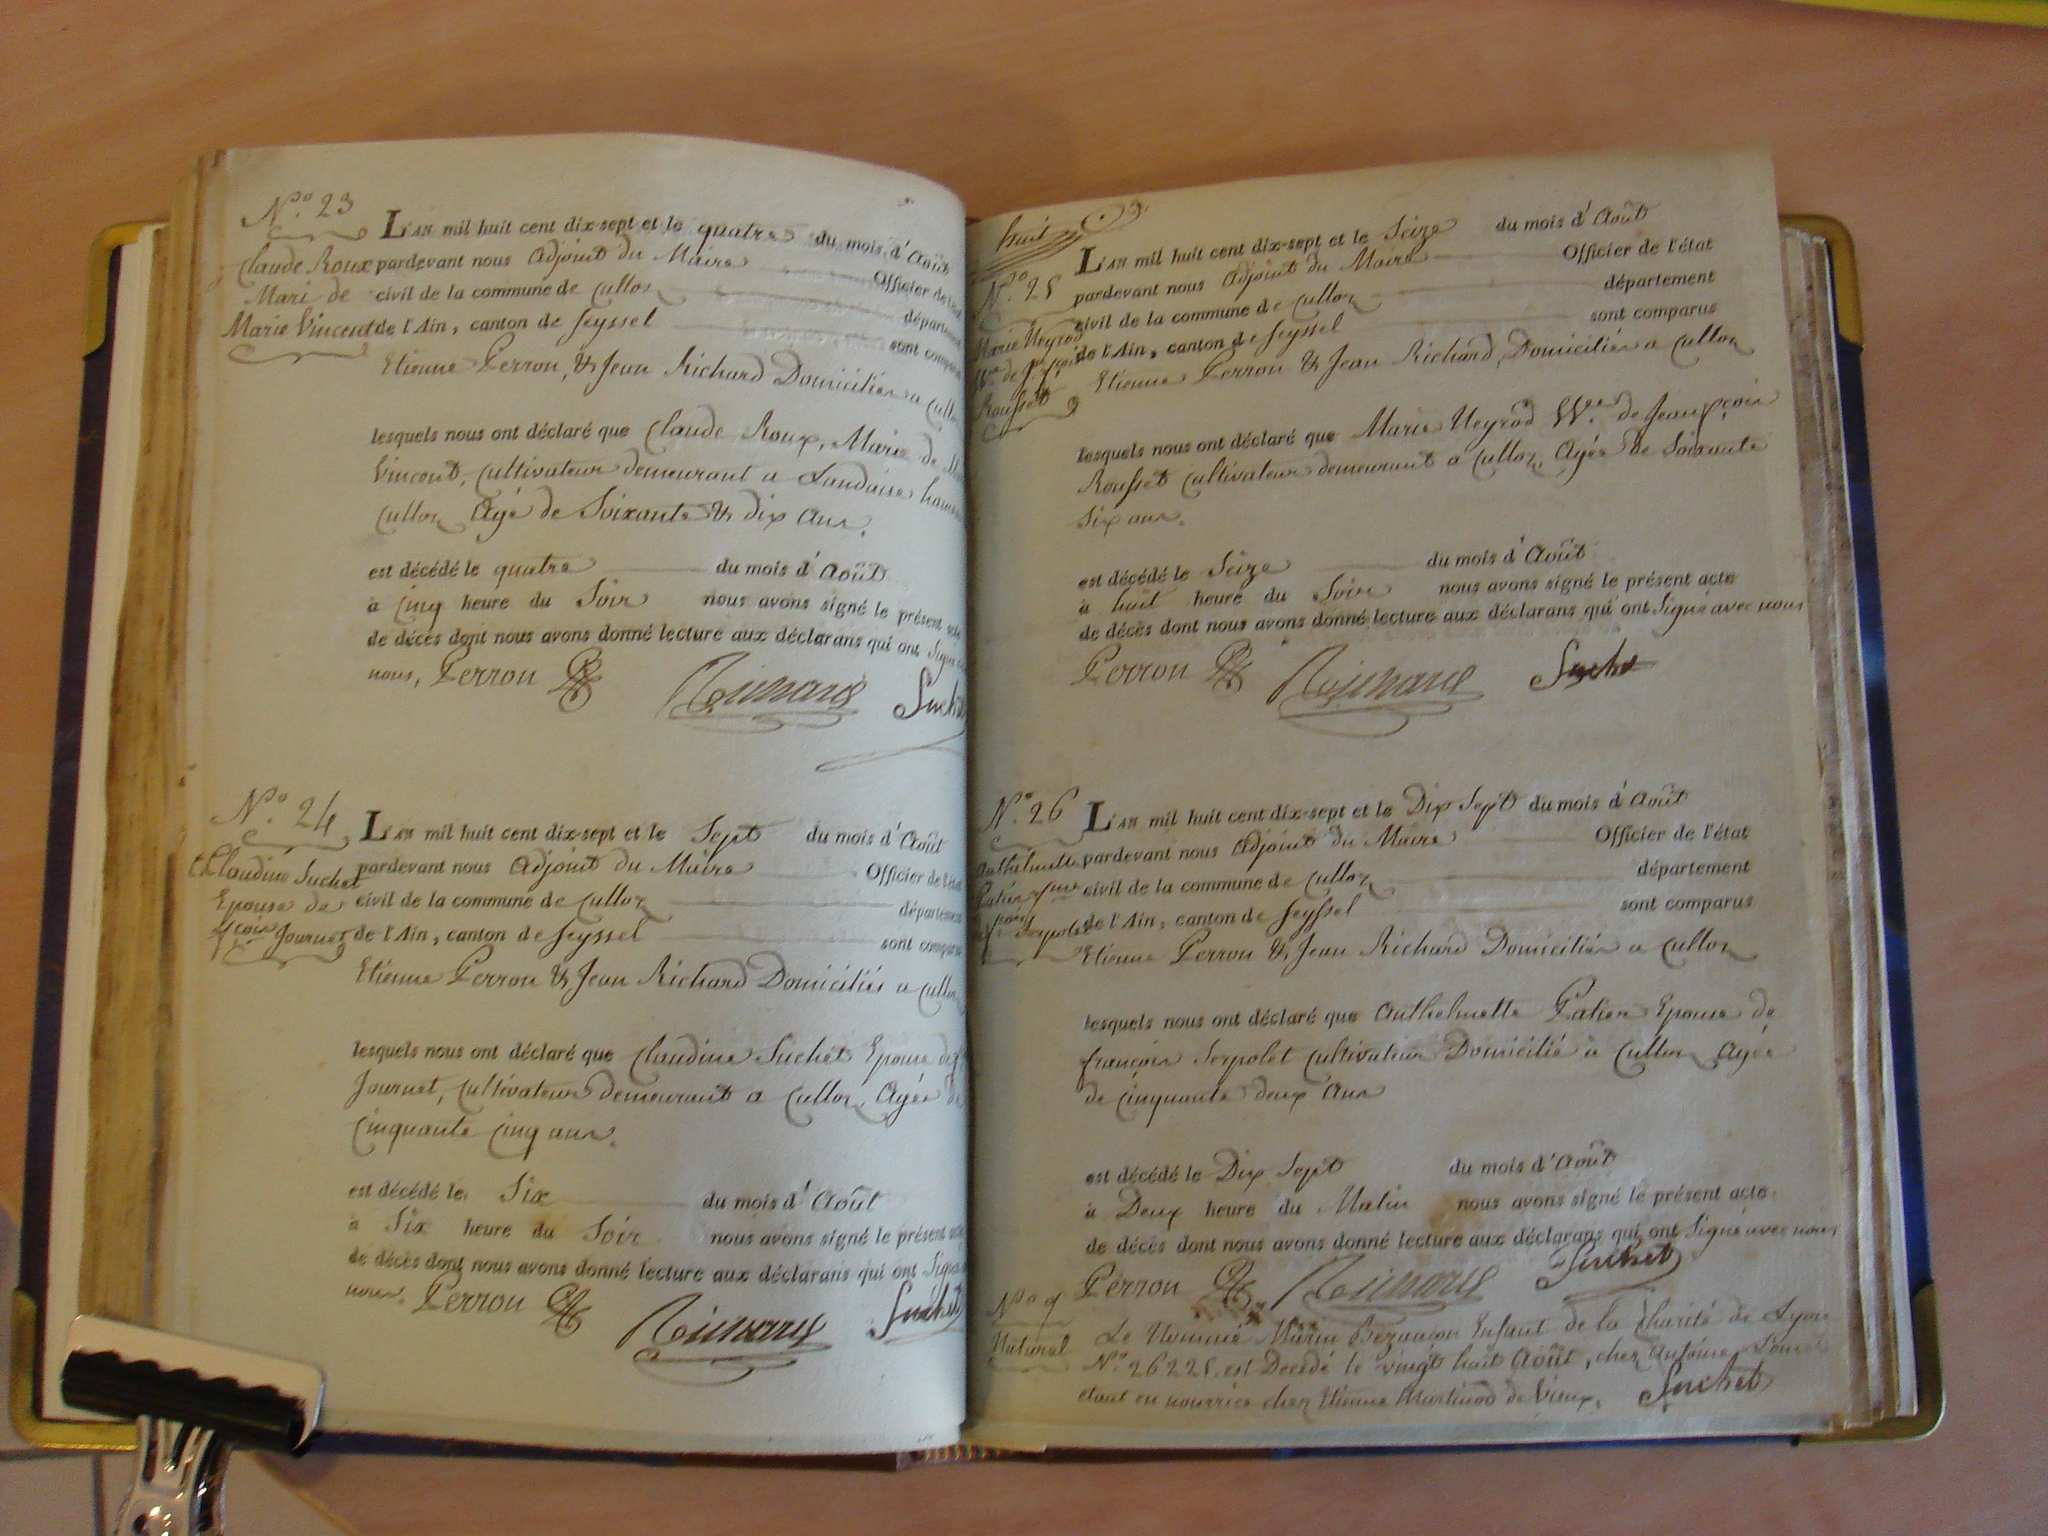 N.º 23
Claude Roux
Mari de
Marie Vincent
L'an mil huit cent dix-sept et le quatre du mois d'Août
pardevant nous Adjoint du Maire Officier de l'état
civil de la commune de Culloz département
de l'Ain, canton de Seyssel sont comparus
Etienne Perron, & Jean Richard Domiciliés a Culloz
lesquels nous ont déclaré que Claude Roux, Marie de
Vincent, cultivateur demeurant a Landaise
Culloz Agé de Soixante & dix Ans.
est décédé le quatre du mois d'Août
à Cinq heure du Soir nous avons signé le présent acte
de décès dont nous avons donné lecture aux déclarans qui ont Signé
nous, Perron Richard Suchet
N.º 24
Claudine Suchet
Epouse de
fçois Journet
L'an mil huit cent dix-sept et le Sept du mois d'Août
pardevant nous Adjoint du Maire Officier de l'état
civil de la commune de Culloz département
de l'Ain, canton de Seyssel sont comparus
Etienne Perron & Jean Richard Domiciliés a Culloz
lesquels nous ont déclaré que Claudine Suchet Epouse de
Journet, Cultivateur demeurant a Culloz Agée de
Cinquante Cinq ans.
est décédé le Six du mois d'Août
à Six heure du Soir nous avons signé le présent acte
de décès dont nous avons donné lecture aux déclarans qui ont Signé
nous. Perron Richard Suchet
huit
N.º 25
Marie Neyrod
Wve de J. fçois
Rousset
L'an mil huit cent dix-sept et le Seize du mois d'Août
pardevant nous Adjoint du Maire Officier de l'état
civil de la commune de Culloz département
de l'Ain, canton de Seyssel sont comparus
Etienne Perron & Jean Richard, Domiciliés a Culloz
lesquels nous ont déclaré que Marie Neyrod Wve de Jean fçois
Rousset cultivateur demeurant a Culloz, Agée de Soixante
Six ans.
est décédé le Seize du mois d'Août
à huit heure du Soir nous avons signé le présent acte
de décès dont nous avons donné lecture aux déclarans qui ont Signé avec nous
Perron Richard Suchet
N.º 26
Anthelmette
Patien fme
Serpolet
L'an mil huit cent dix-sept et le Dix Sept du mois d'Août
pardevant nous Adjoint du Maire Officier de l'état
civil de la commune de Culloz département
de l'Ain, canton de Seyssel sont comparus
Etienne Perron & Jean Richard Domiciliés a Culloz
lesquels nous ont déclaré que Anthelmette Patien Epouse de
françois Serpolet cultivateur Domicilié a Culloz Agée
de Cinquante deux Ans
est décédé le Dix Sept du mois d'Août
à Deux heure du Matin nous avons signé le présent acte
de décès dont nous avons donné lecture aux déclarans qui ont Signé avec nous
Perron Richard Suchet
Natural
Le Nommé Marin Bezancon Enfant de la Charité de Lyon
N.º 26225 est Decédé le vingt huit Août, chez Antoine
étant en nourrice chez Etienne Martinod de Vieux. Suchet